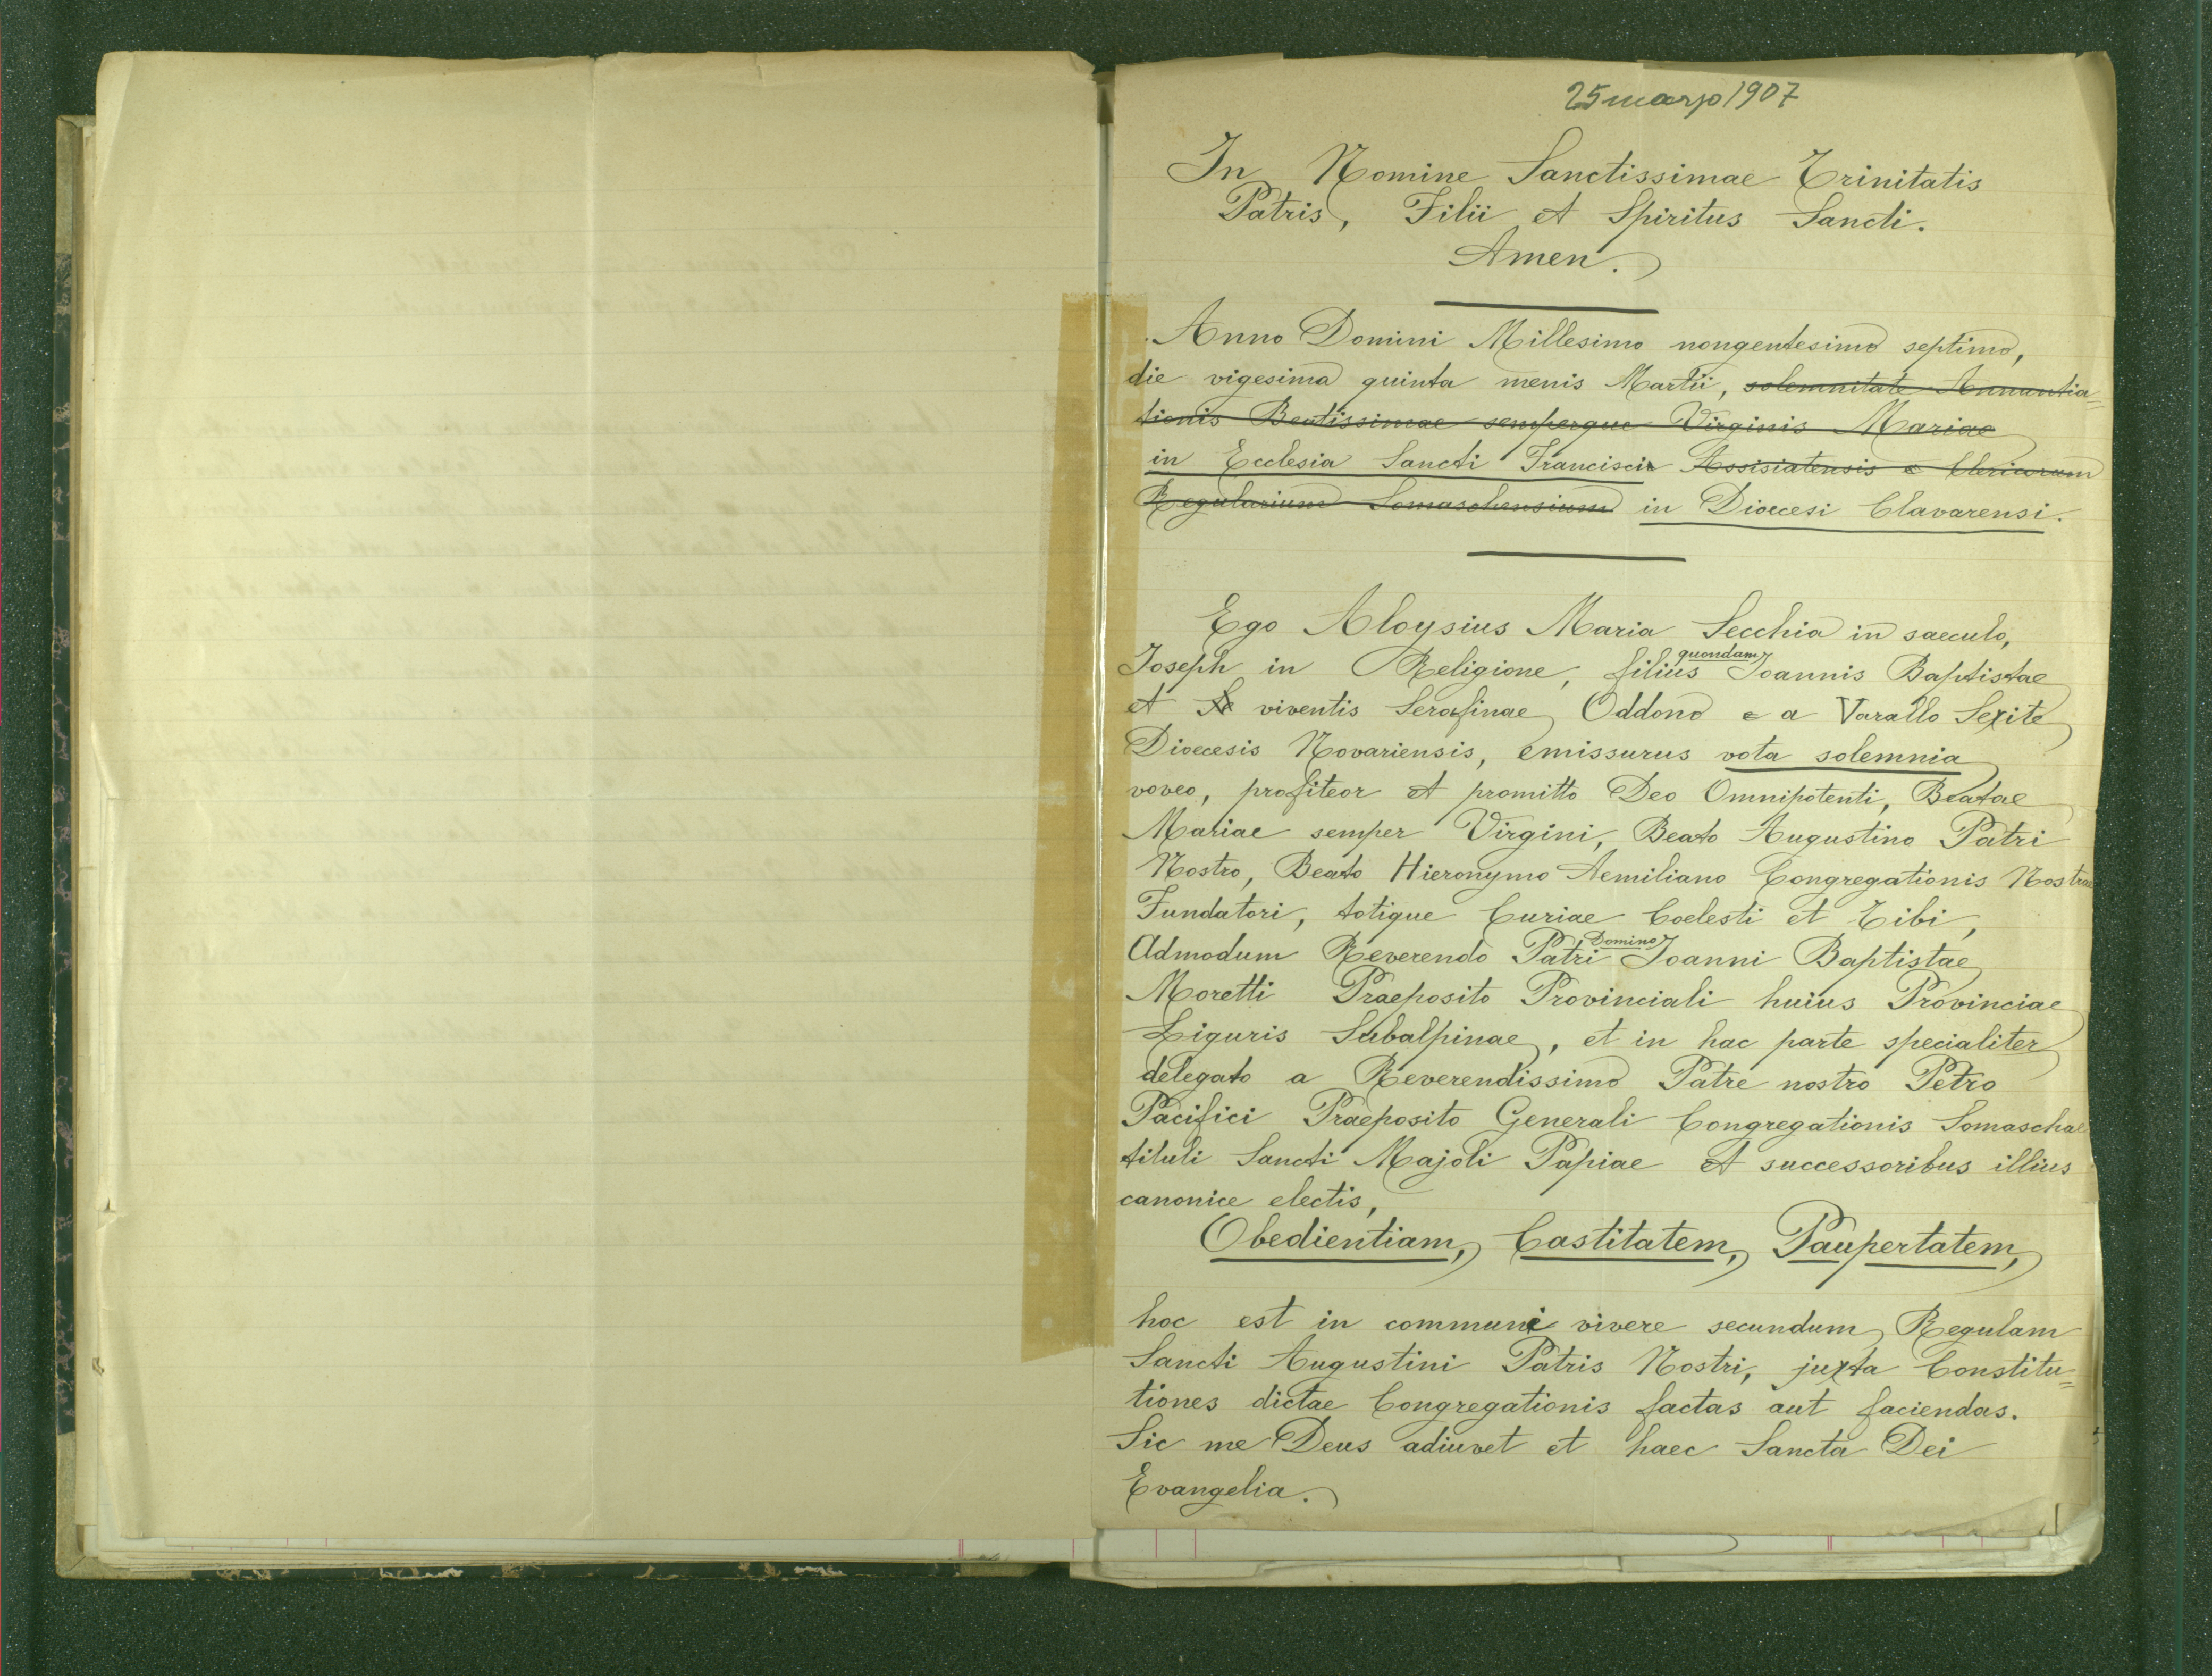 25 marzo 1907
In Nomine Sanctissimae Trinitatis
Patris, Filii et Spiritus Sancti.
Amen.
Anno Domini Millesimo nongentesimo septimo,
die vigesima quinta menis Martii, solemnitate Annuntia=
tionis Beatissimae semperque Virginis Mariae
in Ecclesia Sancti Francisci Assisiatensis Clericorum
Regularium Somaschensium in Dioecesi Clavarensi.
Ego Aloysius Maria Secchia in saeculo,
Joseph in Religione, filius quondam Joannis Baptistae
et viventis Serafinae Oddono a Varallo Sexite
Dioecesis Novariensis, emissurus vota solemnia
voveo, profiteor et promitto Deo Omnipotenti, Beatae
Mariae semper Virgini, Beato Augustino Patri
Nostro, Beato Hieronymo Aemiliano Congregationis Nostrae
Fundatori, totique Curiae Coelesti et Tibi,
Admodum Reverendo Patri Domino Joanni Baptistae
Moretti Praeposito Provinciali huius Provinciae
Liguris Subalpinae, et in hac parte specialiter
delegato a Reverendissimo Patre nostro Petro
Pacifici Praeposito Generali Congregationis Somaschae
tituli Sancti Majoli Papiae et successoribus illius
canonice electis,
Obedientiam, Castitatem, Paupertatem,
hoc est in communi vivere secundum Regulam
Sancti Augustini Patris Nostri, juxta Constitu=
tiones dictae Congregationis factas aut faciendas.
Sic me Deus adiuvet et haec Sancta Dei
Evangelia.